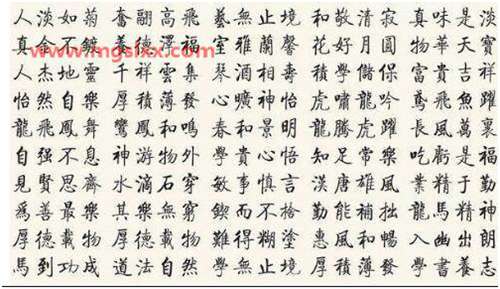 人淡如菊 奮翮高飛 藝無止境 和敬清寂 真味是淡
真不 養德澤福 室雅蘭馨 花好月圓 物華天寶
www.mgslxx.com
人杰地靈 千祥雲集 琴酒相壽 學儲保 富貴吉祥
怡然自樂 厚積薄發 心曠神怡 虎嘯龍吟 鳶飛魚躍
龍飛鳳舞 鸞鳳和鳴 春和景明 龍騰虎躍 長風萬裏
自强不息 神游物外 學貴心悟 知足常樂 吃虧是福
見賢思齊 水滴石穿 敏事慎言 漢唐雄風 業精于勤
爲善最樂 其樂無窮 鍥而不捨 勤能補拙 龍馬精神
厚德載物 厚德載物 難得糊塗 惠風和暢 入幽出朗
馬到功成 道法自然 學無止境 厚積薄發 學書養志